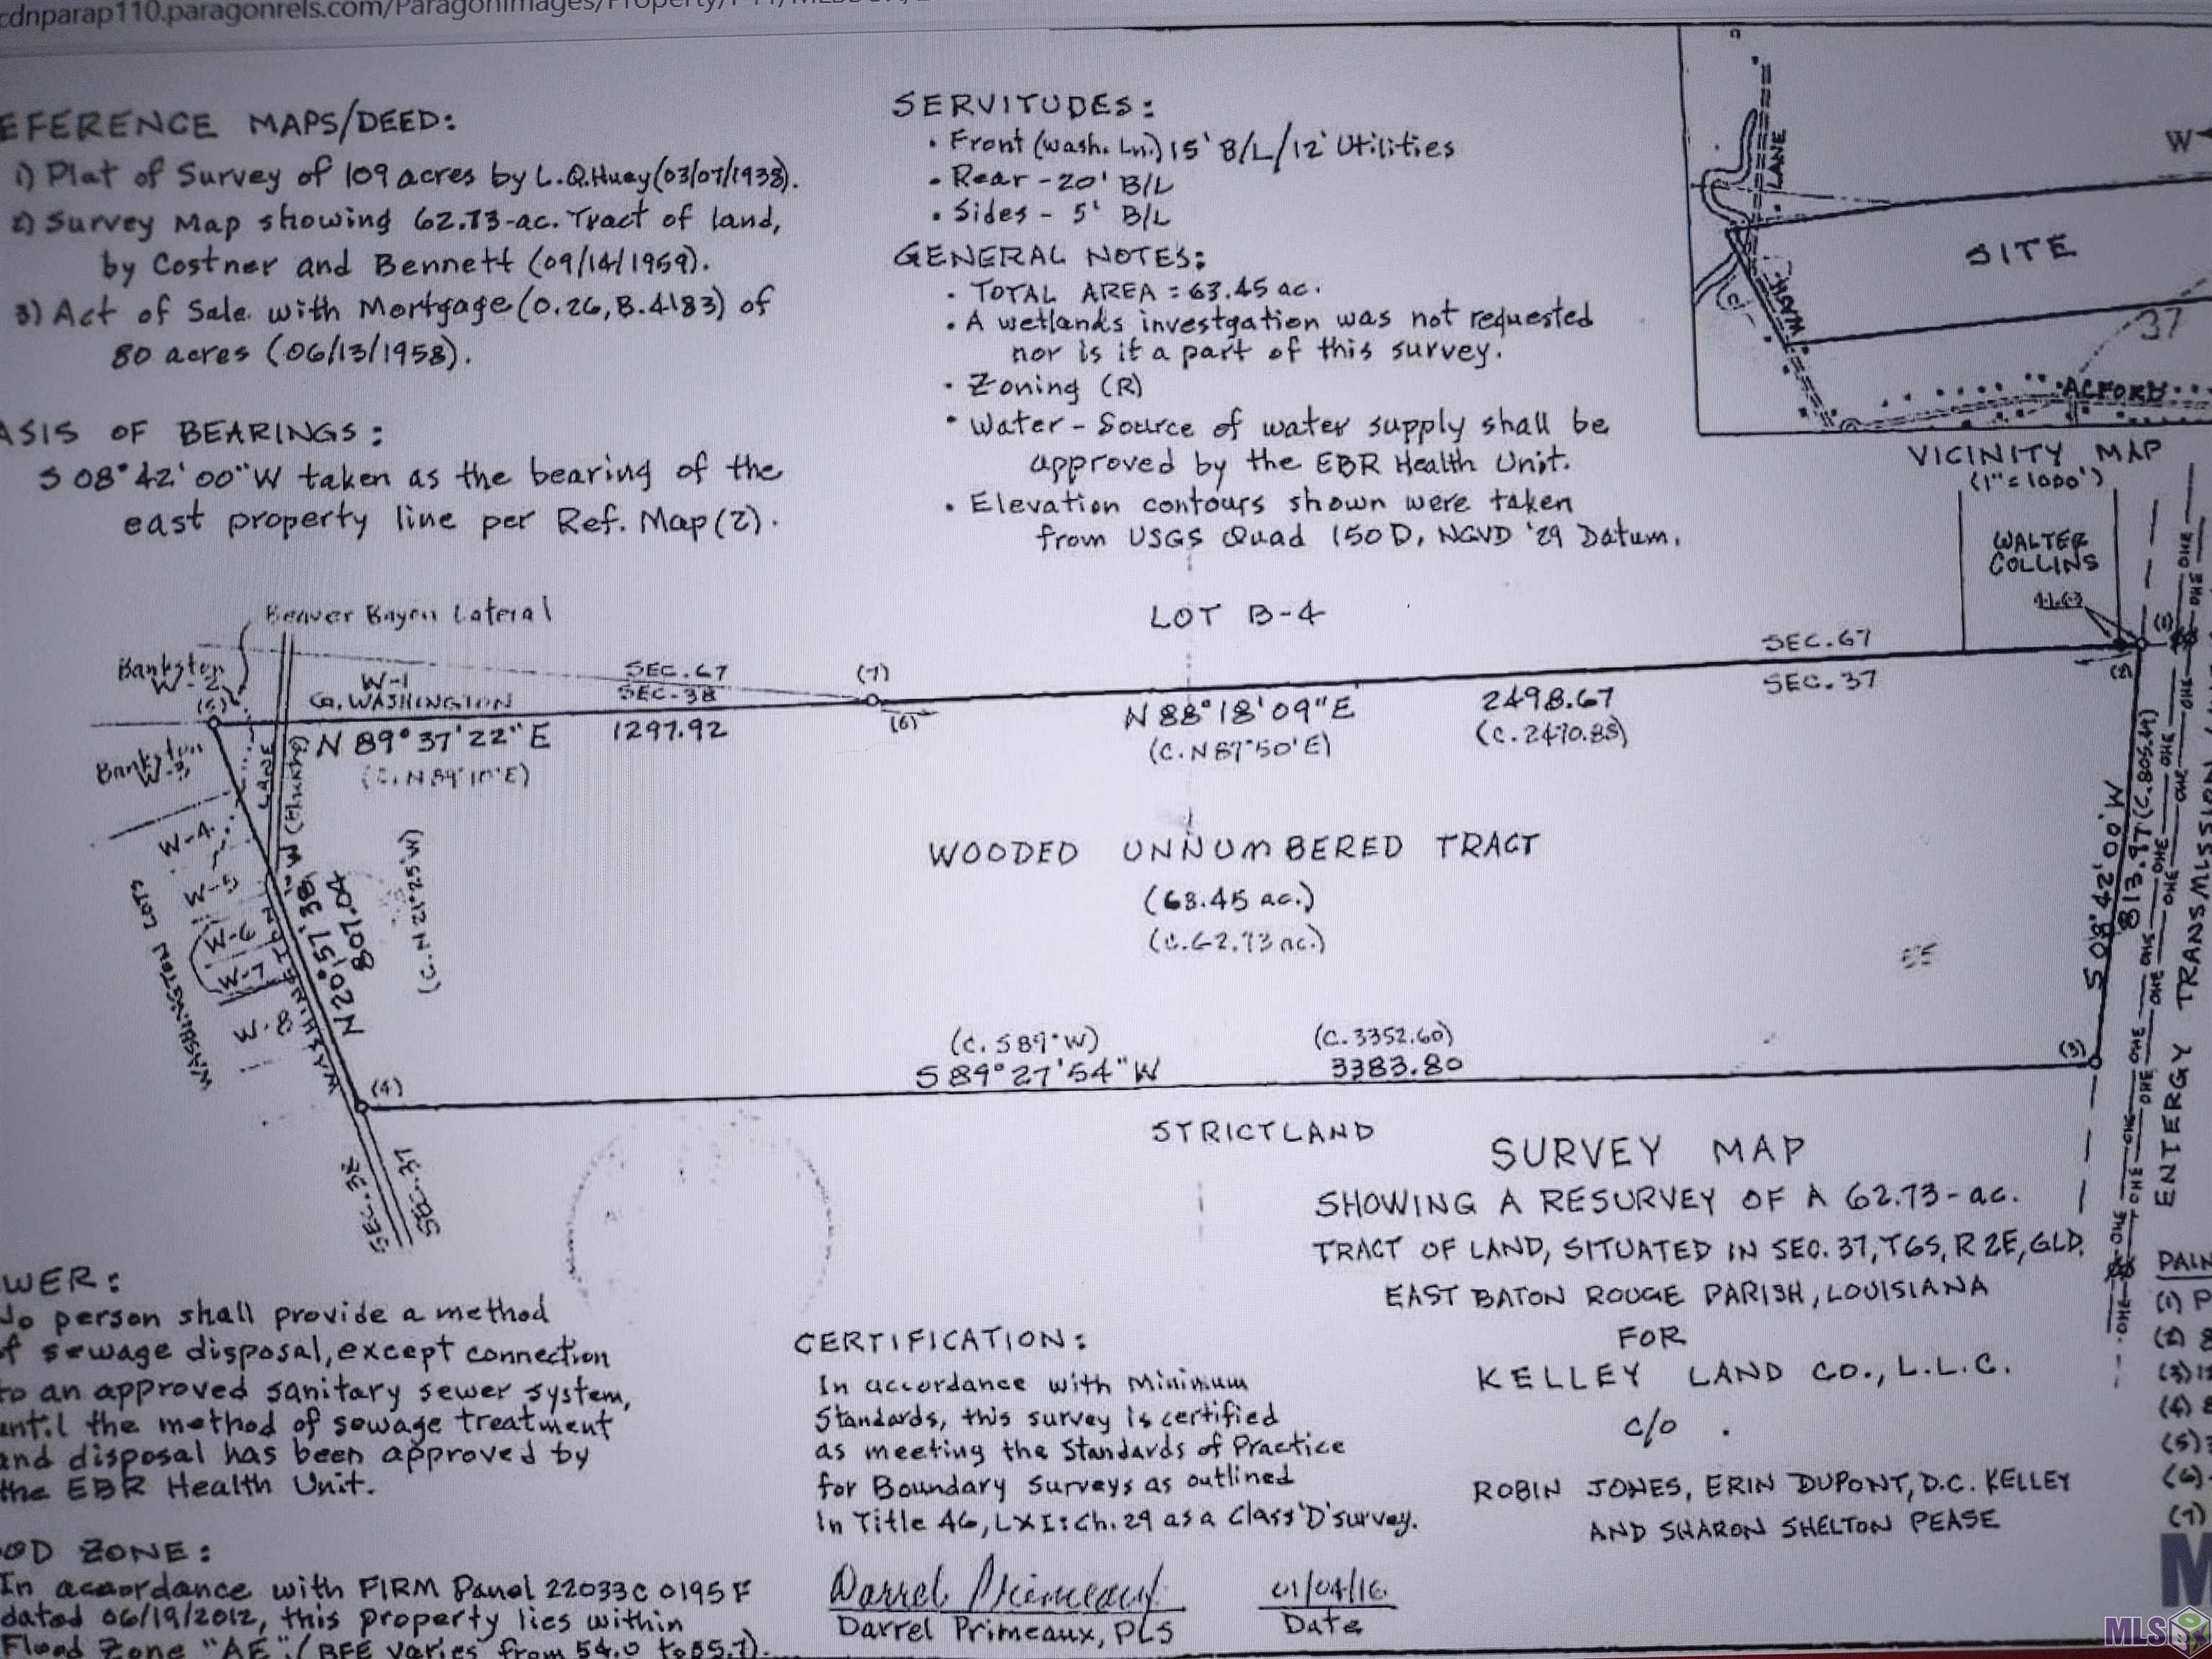 cdnparap110.paragonrels.com/ParagonImages/Property/
EFERENCE MAPS/DEED:
1) Plat of Survey of 109 acres by L.Q.Huey(03/07/1938).
2) Survey Map showing 62.73-ac. Tract of land,
by Costner and Bennett (09/14/1959).
3) Act of Sale with Mortgage (O.26, B.4183) of
80 acres (06/13/1958).
ASIS OF BEARINGS:
S 08°42'00"W taken as the bearing of the
east property line per Ref. Map(2).
SERVITUDES:
• Front (Wash. Ln.) 15' B/L/12' Utilities
• Rear - 20' B/L
• Sides - 5' B/L
GENERAL NOTES:
• TOTAL AREA = 63.45 ac.
• A wetlands investgation was not requested
nor is it a part of this survey.
• Zoning (R)
• Water - Source of water supply shall be
approved by the EBR Health Unit.
• Elevation contours shown were taken
from USGS Quad 150D, NGVD '29 Datum.
W
LANE
SITE
WASH.
37
ACFORD
VICINITY MAP
(1"=1000')
WALTER
COLLINS
Beaver Bayou Lateral
LOT B-4
Bankston
W-2
(5)
W-1
Go. WASHINGTON
SEC.67
SEC.38
(7)
(6)
SEC.67
SEC.37
(1)
(2)
N 89°37'22"E 1297.92
(C. N 89°10'E)
N 88°18'09"E 2498.67
(C. N 87°50'E) (C. 2470.88)
Bankston
W-3
LANE
W-4
W-5
W-6
W-7
W-8
WASHINGTON LOTS
WASHINGTON
N20°57'38"W
807.04
(C. N 21°25'W)
WOODED UNNUMBERED TRACT
(63.45 ac.)
(C. 62.73 ac.)
S 08°42'00"W
813.97 (C. 805.49)
OHE
ENTERGY TRANSMISSION
(C. S 89°W) (C. 3352.60)
S 89°27'54"W 3383.80
(3)
(4)
STRICTLAND
SEC. 38
SEC. 37
SURVEY MAP
SHOWING A RESURVEY OF A 62.73-ac.
TRACT OF LAND, SITUATED IN SEC. 37, T6S, R2E, GLD,
EAST BATON ROUGE PARISH, LOUISIANA
FOR
KELLEY LAND CO., L.L.C.
c/o
ROBIN JONES, ERIN DUPONT, D.C. KELLEY
AND SHARON SHELTON PEASE
WER:
No person shall provide a method
of sewage disposal, except connection
to an approved sanitary sewer system,
until the method of sewage treatment
and disposal has been approved by
the EBR Health Unit.
OD ZONE:
In accordance with FIRM Panel 22033C 0195 F
dated 06/19/2012, this property lies within
Flood Zone "AE" (BFE varies from 54.0 to 55.7).
CERTIFICATION:
In accordance with Minimum
Standards, this survey is certified
as meeting the Standards of Practice
for Boundary Surveys as outlined
in Title 46, LXI: Ch. 29 as a Class 'D' survey.
Darrel Primeaux 01/04/16
Darrel Primeaux, PLS Date
PAIN
(1) P
(2) 8
(3)
(4) 8
(5)
(6)
(7)
M
MLS BOX